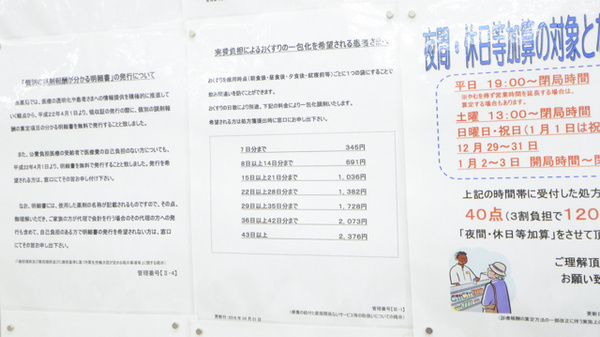 「個別の調剤報酬が分かる明細書」の発行について
また、公費負担医療の受給者で医療費の自己負担のない方についても、
平成22年4月1日より、明細書を無料で発行すると致しました。発行を
希望される方は、窓口にてその旨お申し付け下さい。
なお、明細書には、使用した薬剤の名称が記載されるものですので、その点、
御理解いただき、ご家族の方が代理で会計を行う場合のその代理の方への発
行も含めて、自己負担のある方で明細書の発行を希望されない方は、窓口
にてその旨お申し出下さい。
管理番号【Ⅱ-4】
実費負担によるおくすりの一包化を希望される患者さまへ
おくすりを服用時点(朝食後・昼食後・夕食後・就寝前等)ごとに1つの袋にすることで
飲み間違いを防ぐことができます。
おくすりの日数により別途、下記の料金により一包化調剤いたします。
希望される方は処方箋提出時に窓口にお申し出下さい。
7日分まで 345円
8日以上14日分まで 691円
15日以上21日分まで 1,036円
22日以上28日分まで 1,382円
29日以上35日分まで 1,728円
36日以上42日分まで 2,073円
43日以上 2,376円
管理番号【Ⅲ-1】
夜間・休日等加算の対象とな
平日 19:00〜閉局時間
※やむを得ず営業時間を延長する場合は、
算定する場合もあります。
土曜 13:00〜閉局時間
日曜日・祝日(1月1日は祝
12月29〜31日
1月2〜3日 開局時間〜閉
上記の時間帯に受付した処方
40点(3割負担で120
「夜間・休日等加算」をさせて頂
ご理解頂
お願い致